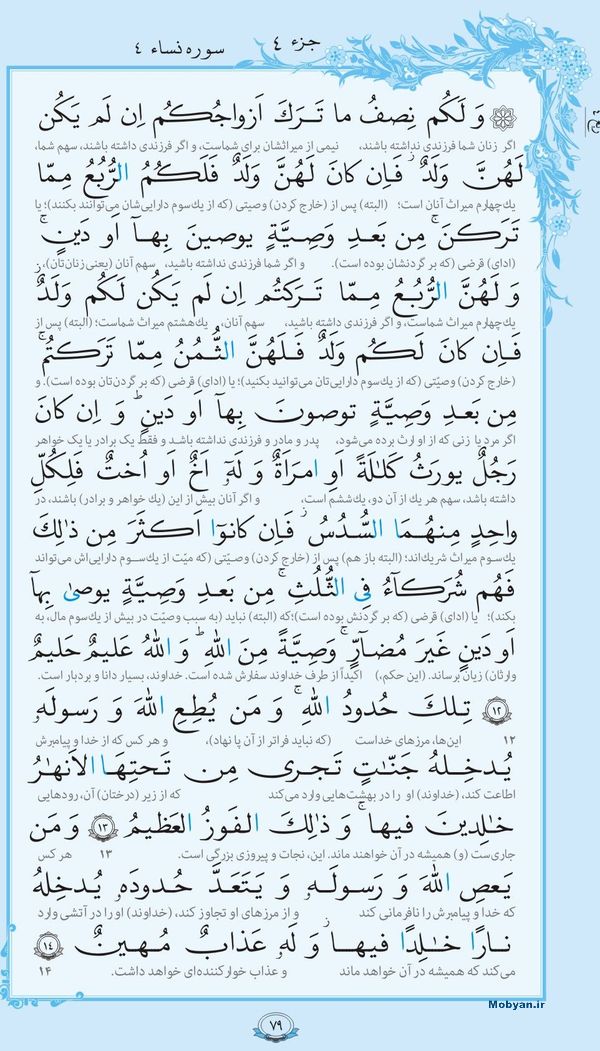 جزء ٤ سوره نساء ٤
وَ لَکُم نِصفُ ما تَرَكَ اَزواجُکُم اِن لَم یَکُن
اگر زنان شما فرزندی نداشته باشند، نیمی از میراثشان برای شماست، و اگر فرزندی داشته باشند، سهم شما،
لَهُنَّ وَلَدٌ ۚ فَاِن کانَ لَهُنَّ وَلَدٌ فَلَکُمُ الرُّبُعُ مِمّا
یك‌چهارم میراث آنان است؛ (البته) پس از (خارج کردن) وصیتی (که از یك‌سوم دارایی‌شان می‌توانند بکنند)؛ یا
تَرَکنَ ۚ مِن بَعدِ وَصِیَّةٍ یوصینَ بِهآ اَو دَینٍ ۚ
(ادای) قرضی (که بر گردنشان بوده است). و اگر شما فرزندی نداشته باشید، سهم آنان (یعنی زنان‌تان)،
وَ لَهُنَّ الرُّبُعُ مِمّا تَرَکتُم اِن لَم یَکُن لَکُم وَلَدٌ ۚ
یك‌چهارم میراث شماست، و اگر فرزندی داشته باشید، سهم آنان، یك‌هشتم میراث شماست؛ (البته) پس از
فَاِن کانَ لَکُم وَلَدٌ فَلَهُنَّ الثُّمُنُ مِمّا تَرَکتُم ۚ
(خارج کردن) وصیّتی (که از یك‌سوم دارایی‌تان می‌توانید بکنید)؛ یا (ادای) قرضی (که بر گردن‌تان بوده است). و
مِن بَعدِ وَصِیَّةٍ توصونَ بِهآ اَو دَینٍ ۗ وَ اِن کانَ
اگر مرد یا زنی که از او ارث برده می‌شود، پدر و مادر و فرزندی نداشته باشد و فقط یک برادر یا یک خواهر
رَجُلٌ یورَثُ کَلٰلَةً اَوِ امرَاَةٌ وَ لَهٗٓ اَخٌ اَو اُختٌ فَلِکُلِّ
داشته باشد، سهم هر یك از آن دو، یك‌ششم است، و اگر آنان بیش از این (یك خواهر و برادر) باشند، در
واحِدٍ مِنهُمَا السُّدُسُ ۚ فَاِن کانوٓا اَکثَرَ مِن ذٰلِكَ
یك‌سوم میراث شریك‌اند؛ (البته باز هم) پس از (خارج کردن) وصیّتی (که میّت از یك‌سوم دارایی‌اش می‌تواند
فَهُم شُرَکآءُ فِی الثُّلُثِ ۚ مِن بَعدِ وَصِیَّةٍ یوصیٰ بِهآ
بکند)؛ یا (ادای) قرضی (که بر گردنش بوده است)؛که (البته) نباید (به سبب وصیّت در بیش از یك‌سوم مال، به
اَو دَینٍ غَیرَ مُضآرٍّ ۚ وَصِیَّةً مِنَ اللهِ ۗ وَ اللهُ عَلیمٌ حَلیمٌ
وارثان) زیان برساند. (این حکم،) اکیداً از طرف خداوند سفارش شده است. خداوند، بسیار دانا و بردبار است.
﴿١٢﴾ تِلكَ حُدودُ اللهِ ۚ وَ مَن یُطِعِ اللهَ وَ رَسولَهٗ
١٢ این‌ها، مرزهای خداست (که نباید فراتر از آن پا نهاد)، و هر کس که از خدا و پیامبرش
یُدخِلهُ جَنّاتٍ تَجری مِن تَحتِهَا الاَنهٰرُ
اطاعت کند، (خداوند) او را در بهشت‌هایی وارد می‌کند که از زیر (درختان) آن، رودهایی
خٰلِدینَ فیها ۚ وَ ذٰلِكَ الفَوزُ العَظیمُ ﴿١٣﴾ وَ مَن
جاری‌ست (و) همیشه در آن خواهند ماند. این، نجات و پیروزی بزرگی است. ١٣ هر کس
یَعصِ اللهَ وَ رَسولَهٗ وَ یَتَعَدَّ حُدودَهٗ یُدخِلهُ
که خدا و پیامبرش را نافرمانی کند و از مرزهای او تجاوز کند، (خداوند) او را در آتشی وارد
نارًا خٰلِدًا فیها وَ لَهٗ عَذابٌ مُهینٌ ﴿١٤﴾
می‌کند که همیشه در آن خواهد ماند و عذاب خوارکننده‌ای خواهد داشت. ١٤
Mobyan.ir
٧٩